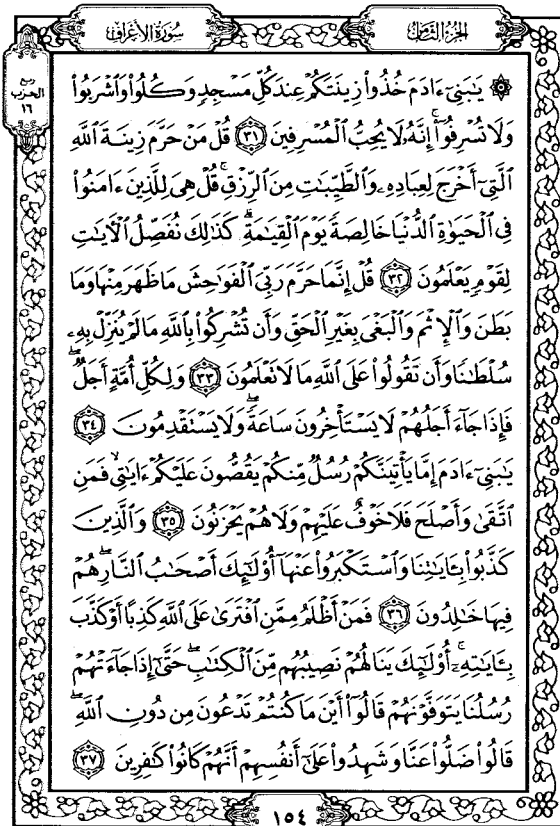 سُورَةُ الأَعْرَافِ
الجُزْءُ الثَّامِنُ
ربع
الحزب
١٦
۞ يَـٰبَنِىٓ ءَادَمَ خُذُوا۟ زِينَتَكُمْ عِندَ كُلِّ مَسْجِدٍ وَكُلُوا۟ وَٱشْرَبُوا۟
وَلَا تُسْرِفُوٓا۟ ۚ إِنَّهُۥ لَا يُحِبُّ ٱلْمُسْرِفِينَ ٣١ قُلْ مَنْ حَرَّمَ زِينَةَ ٱللَّهِ
ٱلَّتِىٓ أَخْرَجَ لِعِبَادِهِۦ وَٱلطَّيِّبَـٰتِ مِنَ ٱلرِّزْقِ ۚ قُلْ هِىَ لِلَّذِينَ ءَامَنُوا۟
فِى ٱلْحَيَوٰةِ ٱلدُّنْيَا خَالِصَةً يَوْمَ ٱلْقِيَـٰمَةِ ۗ كَذَٰلِكَ نُفَصِّلُ ٱلْـَٔايَـٰتِ
لِقَوْمٍ يَعْلَمُونَ ٣٢ قُلْ إِنَّمَا حَرَّمَ رَبِّىَ ٱلْفَوَٰحِشَ مَا ظَهَرَ مِنْهَا وَمَا
بَطَنَ وَٱلْإِثْمَ وَٱلْبَغْىَ بِغَيْرِ ٱلْحَقِّ وَأَن تُشْرِكُوا۟ بِٱللَّهِ مَا لَمْ يُنَزِّلْ بِهِۦ
سُلْطَـٰنًا وَأَن تَقُولُوا۟ عَلَى ٱللَّهِ مَا لَا تَعْلَمُونَ ٣٣ وَلِكُلِّ أُمَّةٍ أَجَلٌ ۖ
فَإِذَا جَآءَ أَجَلُهُمْ لَا يَسْتَأْخِرُونَ سَاعَةً ۖ وَلَا يَسْتَقْدِمُونَ ٣٤
يَـٰبَنِىٓ ءَادَمَ إِمَّا يَأْتِيَنَّكُمْ رُسُلٌ مِّنكُمْ يَقُصُّونَ عَلَيْكُمْ ءَايَـٰتِى ۙ فَمَنِ
ٱتَّقَىٰ وَأَصْلَحَ فَلَا خَوْفٌ عَلَيْهِمْ وَلَا هُمْ يَحْزَنُونَ ٣٥ وَٱلَّذِينَ
كَذَّبُوا۟ بِـَٔايَـٰتِنَا وَٱسْتَكْبَرُوا۟ عَنْهَآ أُو۟لَـٰٓئِكَ أَصْحَـٰبُ ٱلنَّارِ ۖ هُمْ
فِيهَا خَـٰلِدُونَ ٣٦ فَمَنْ أَظْلَمُ مِمَّنِ ٱفْتَرَىٰ عَلَى ٱللَّهِ كَذِبًا أَوْ كَذَّبَ
بِـَٔايَـٰتِهِۦٓ ۚ أُو۟لَـٰٓئِكَ يَنَالُهُمْ نَصِيبُهُم مِّنَ ٱلْكِتَـٰبِ ۖ حَتَّىٰٓ إِذَا جَآءَتْهُمْ
رُسُلُنَا يَتَوَفَّوْنَهُمْ قَالُوٓا۟ أَيْنَ مَا كُنتُمْ تَدْعُونَ مِن دُونِ ٱللَّهِ ۖ
قَالُوا۟ ضَلُّوا۟ عَنَّا وَشَهِدُوا۟ عَلَىٰٓ أَنفُسِهِمْ أَنَّهُمْ كَانُوا۟ كَـٰفِرِينَ ٣٧
١٥٤